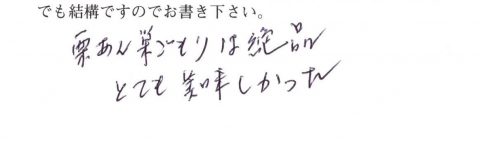 でも結構ですのでお書き下さい。
栗あん巣ごもりは絶品
とても美味しかった